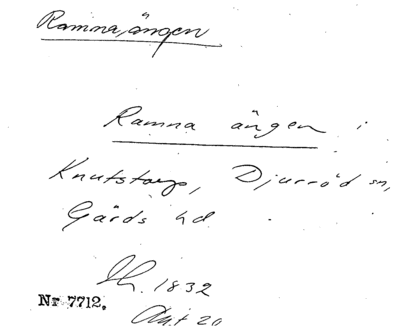 Ramna ängen
Ramna ängen i
Knutstorp, Djurröd sn,
Gärds hd
Lh. 1832
Nr 7712. Akt 20